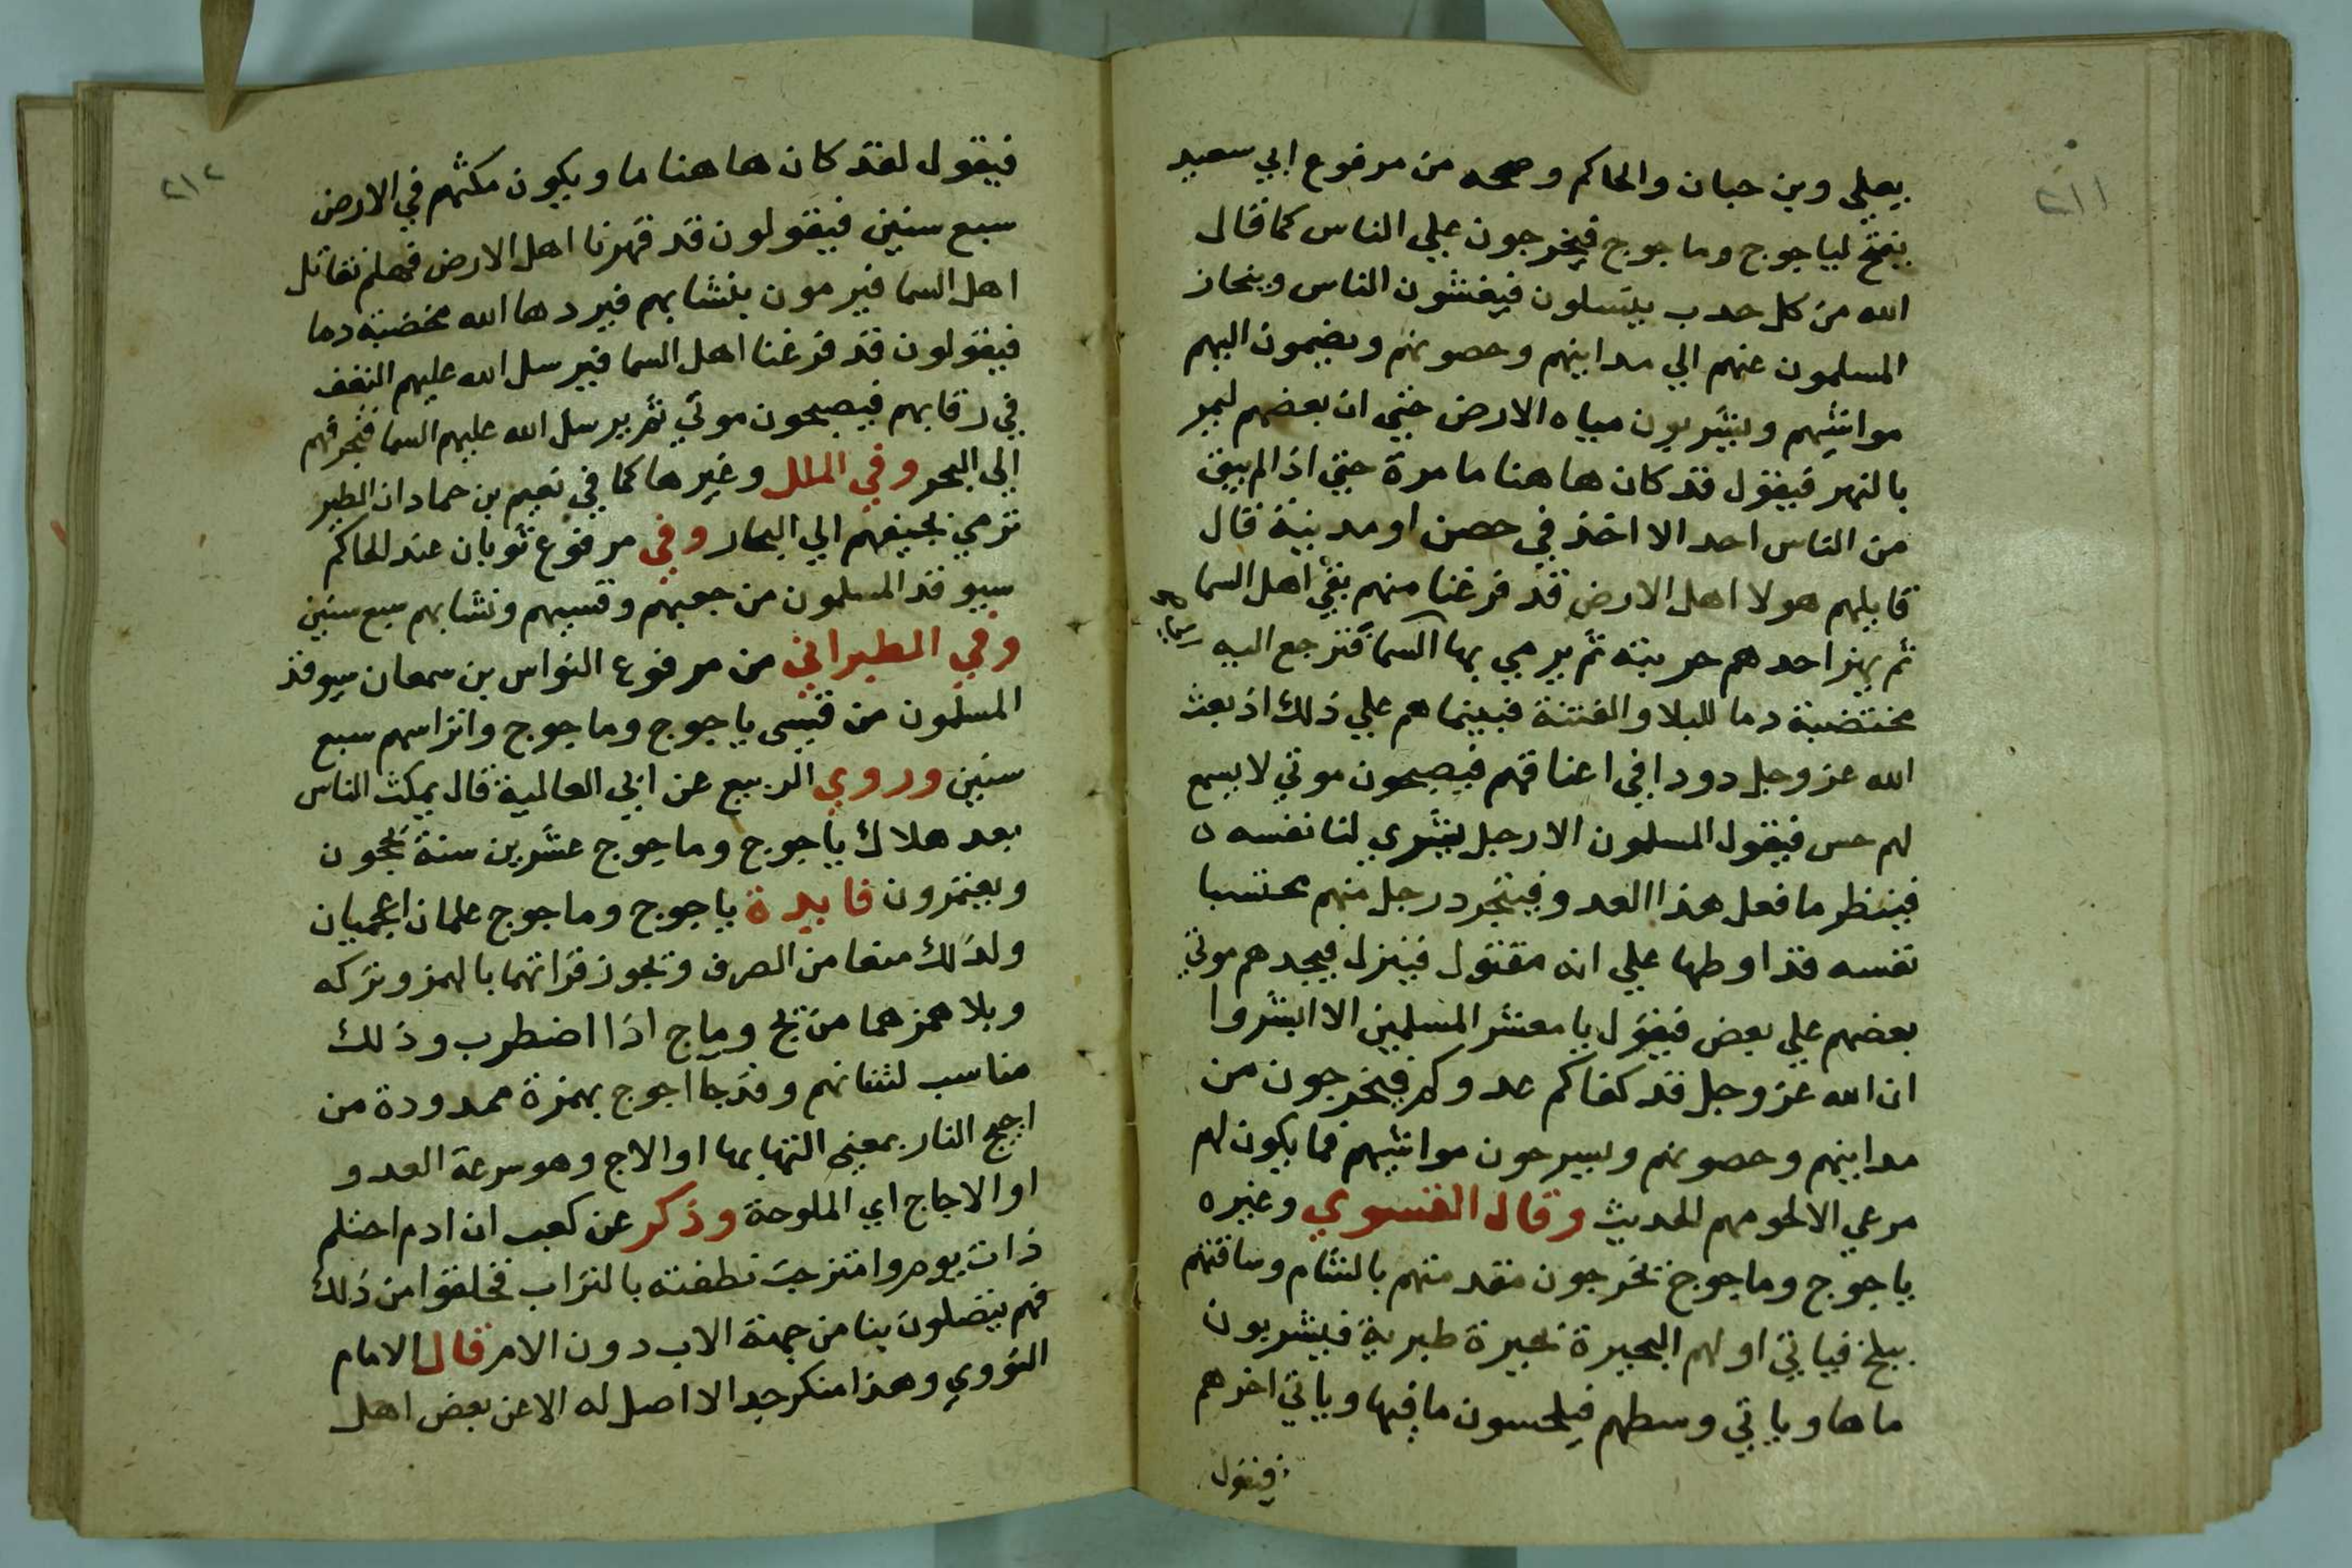 ٢١١
يعلي وبن حبان والحاكم وصححه من مرفوع ابي سعيد
يفتح لياجوج وماجوج فيخرجون علي الناس كما قال
الله من كل حدب ينسلون فيغشون الناس وينحاز
المسلمون عنهم الي مداينهم وحصونهم ويضمون اليهم
مواشيهم ويشربون مياه الارض حتي ان بعضهم ليمر
بالنهر فيقول قد كان هاهنا ما مرة حتي اذا لم يبق
من الناس احد الا اخذ في حصن او مدينة قال
قايلهم هولا اهل الارض قد فرغنا منهم بقي اهل السما
ثم يهز احدهم حربته ثم يرمي بها السما فترجع اليه
مختضبة دما للبلا والفتنة فبينما هم علي ذلك اذ بعث
الله عز وجل دودا في اعناقهم فيصبحون موتي لا يسمع
لهم حس فيقول المسلمون الا رجل يشري لنا نفسه
فينظر ما فعل هذا العدو فيتجرد رجل منهم محتسبا
نفسه قد اوطها علي انه مقتول فينزل فيجدهم موتي
بعضهم علي بعض فيقول يا معشر المسلمين الا ابشروا
ان الله عز وجل قد كفاكم عدوكم فيخرجون من
مداينهم وحصونهم ويسرحون مواشيهم فما يكون لهم
مرعي الا لحومهم الحديث وقال الفسوي وغيره
ياجوج وماجوج تخرجون مقدمتهم بالشام وساقتهم
ببلخ فياتي اولهم البحيرة بحيرة طبرية فيشربون
ماها وياتي وسطهم فيلحسون ما فيها وياتي اخرهم
فيقول
٢١٢
فيقول لقد كان هاهنا ما ويكون مكثهم في الارض
سبع سنين فيقولون قد قهرنا اهل الارض فهلم نقاتل
اهل السما فيرمون بنشابهم فيردها الله مخضبة دما
فيقولون قد فرغنا اهل السما فيرسل الله عليهم النغف
في رقابهم فيصبحون موتي ثم يرسل الله عليهم السما فتجرفهم
الي البحر وفي الملل وغيرها كما في نعيم بن حماد ان الطير
ترمي بجيفهم الي البحار وفي مرفوع ثوبان عند الحاكم
سيوقد المسلمون من جعبهم وقسيهم ونشابهم سبع سنين
وفي الطبراني من مرفوع النواس بن سمعان سيوقد
المسلمون من قسي ياجوج وماجوج واتراسهم سبع
سنين وروي الربيع عن ابي العالية قال يمكث الناس
بعد هلاك ياجوج وماجوج عشرين سنة يحجون
ويعتمرون فايدة ياجوج وماجوج علمان اعجميان
ولذلك منعا من الصرف وتجوز قراتهما بالهمز وتركه
وبلا همز هما من يج وماج اذا اضطرب وذلك
مناسب لشانهم وقد جا اجوج بهمزة ممدودة من
اجيج النار بمعني التهابها او الاج وهو سرعة العدو
او الاجاج اي الملوحة وذكر عن كعب ان ادم احتلم
ذات يوم وامتزجت نطفته بالتراب فخلقوا من ذلك
فهم يتصلون بنا من جهة الاب دون الام قال الامام
النووي وهذا منكر جدا لا اصل له الا عن بعض اهل